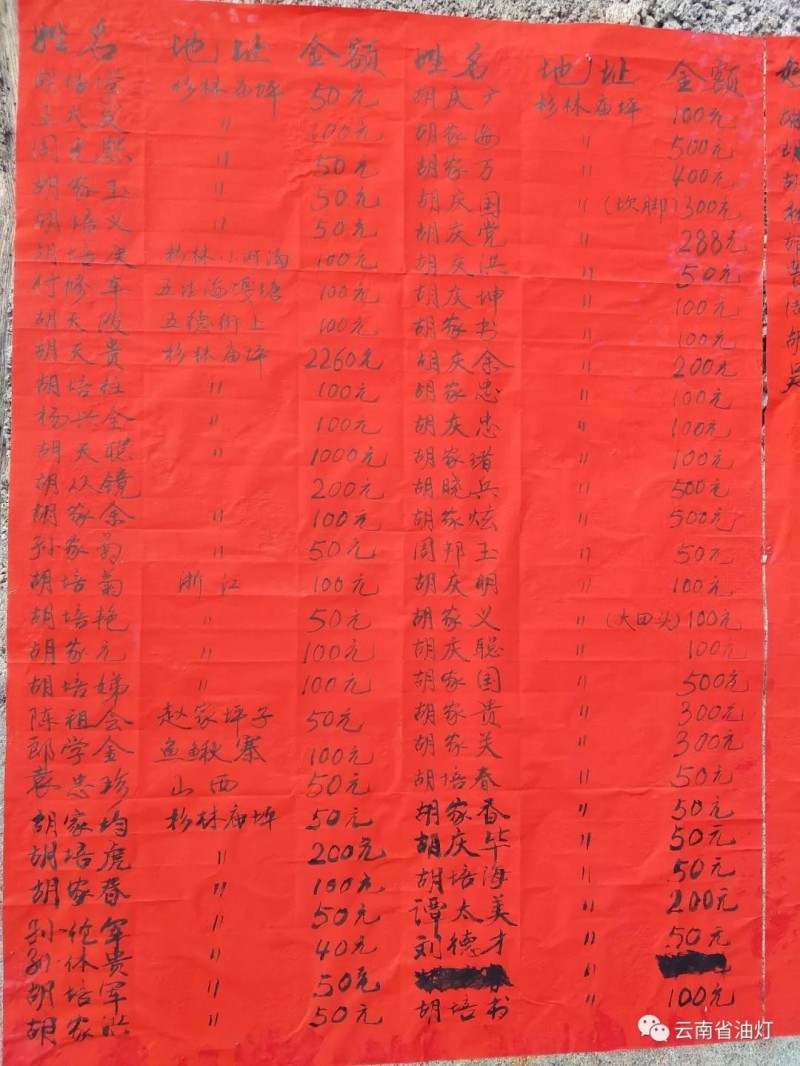 姓名 地址 金额
胡培学 杉林庙坪 50元
王大友 〃 100元
周元熙 〃 50元
胡家玉 〃 50元
胡培义 〃 50元
胡培虎 杉林小河沟 100元
付修车 100元
胡天改 五德街上 100元
胡天贵 杉林庙坪 2260元
胡培柱 〃 100元
杨兴全 〃 100元
胡天聪 〃 1000元
胡从镜 200元
胡家余 〃 100元
孙家菊 〃 50元
胡培菊 浙江 100元
胡培艳 〃 50元
胡家元 〃 100元
胡培娣 〃 100元
陈祖会 赵家坪子 50元
郎学金 鱼鳅寨 100元
袁忠珍 山西 50元
胡家均 杉林庙坪 50元
胡培虎 〃 200元
胡家春 〃 100元
孙伦军 〃 50元
孙休贵 〃 40元
胡培军 〃 50元
胡家洪 〃 50元
姓名 地址 金额
胡庆 杉林庙坪 100元
胡家海 〃 500元
胡家万 〃 400元
胡庆国 〃 (坎脚) 300元
胡庆党 〃 288元
胡庆洪 〃 50元
胡庆坤 〃 100元
胡家书 〃 100元
胡庆余 〃 200元
胡家忠 〃 100元
胡庆忠 〃 100元
胡家绪 〃 100元
胡晓兵 〃 500元
胡家炫 〃 500元
周邦玉 〃 50元
胡庆明 〃 100元
胡家义 〃 (大田头) 100元
胡庆聪 〃 100元
胡家国 〃 500元
胡家贵 〃 300元
胡家美 〃 300元
胡培春 〃 50元
胡家香 〃 50元
胡庆华 〃 50元
胡培海 〃 50元
谭太美 〃 200元
刘德才 〃 50元
〃
胡培书 〃 100元
胡
吴
云南省油灯